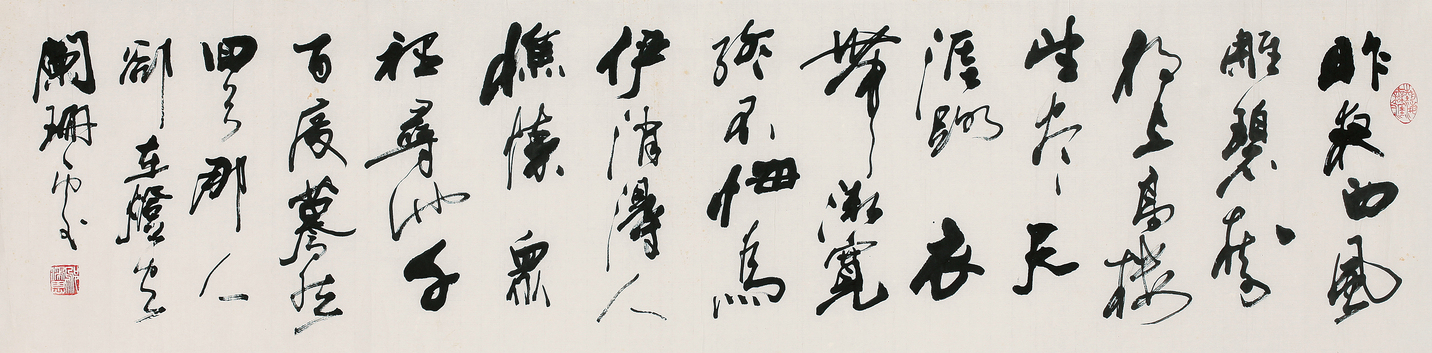 昨夜西風
雕碧樹
獨上高樓
望盡天
涯路 衣
帶漸寬
終不悔為
伊消得人
憔悴 眾
裡尋他千
百度驀然
回首那人
卻在燈火
闌珊處